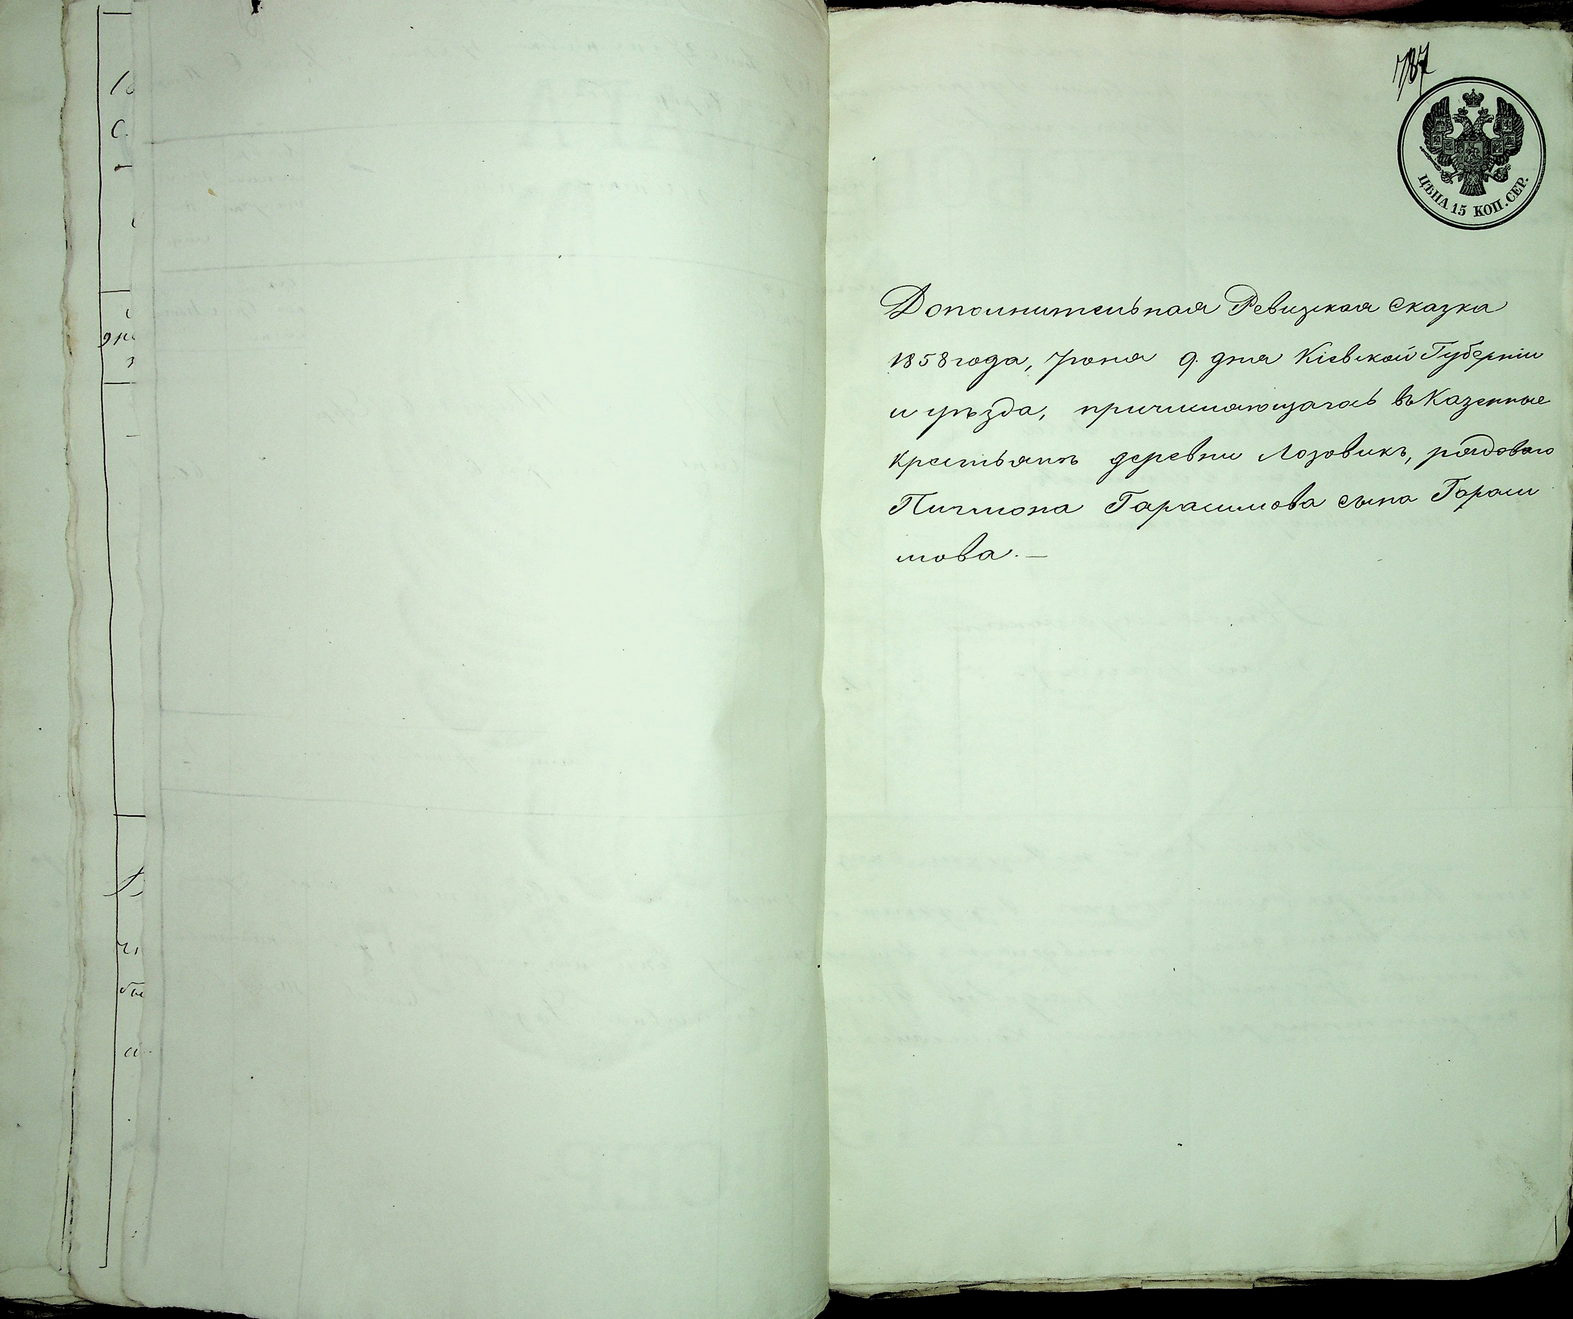 787
ЦѢНА 15 КОП. СЕР.
Дополнительная Ревизская сказка
1858 года, Іюня 9 дня Кіевской Губерніи
и уѣзда, причисляющагось въ Казенные
крестьяпъ деревни Лозовикъ, рядоваго
Гарасимова сына Гараси
мова. —